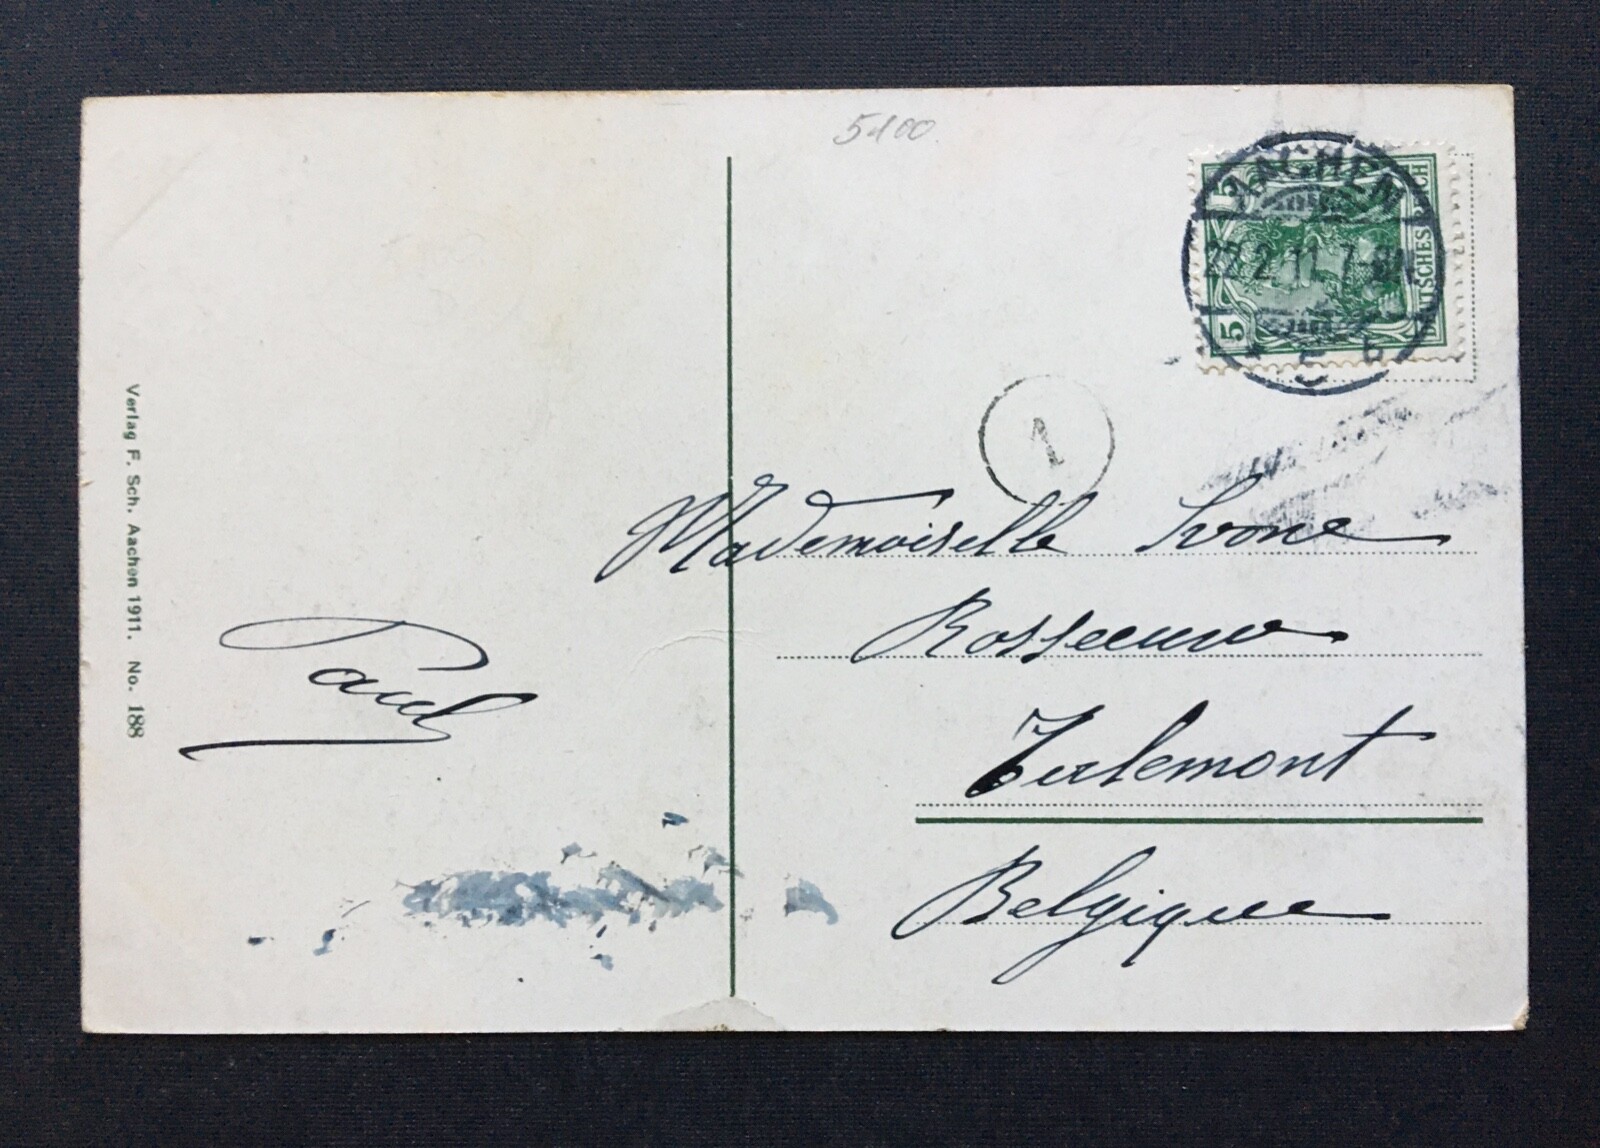 5100
AACHEN
2.11.7-8N
5 b
5
5
DEUTSCHES REICH
1
Mademoiselle Ivone
Rosseeuw
Tirlemont
Belgique
Paul
Verlag F. Sch. Aachen 1911. No. 188